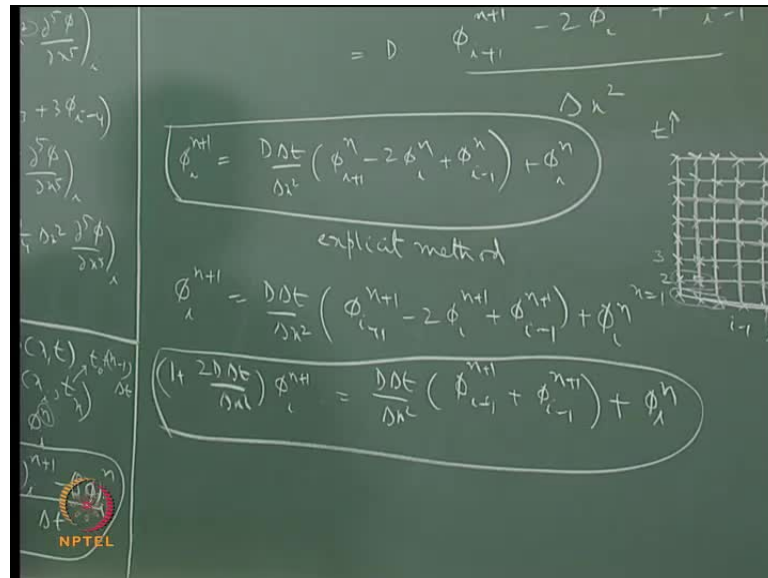 ∂⁵ϕ/∂x⁵)ᵢ
+ 3ϕᵢ₋₄)
∂⁵ϕ/∂x⁵)ᵢ
Δx² ∂⁵ϕ/∂x⁵)ᵢ
(x,t)
Δt
= D (ϕᵢ₊₁ⁿ⁺¹ - 2ϕᵢ + ᵢ₋₁)/Δx²
ϕᵢⁿ⁺¹ = DΔt/Δx² (ϕᵢ₊₁ⁿ - 2ϕᵢⁿ + ϕᵢ₋₁ⁿ) + ϕᵢⁿ
explicit method
ϕᵢⁿ⁺¹ = DΔt/Δx² (ϕᵢ₊₁ⁿ⁺¹ - 2ϕᵢⁿ⁺¹ + ϕᵢ₋₁ⁿ⁺¹) + ϕᵢⁿ
(1 + 2DΔt/Δx²) ϕᵢⁿ⁺¹ = DΔt/Δx² (ϕᵢ₊₁ⁿ⁺¹ + ϕᵢ₋₁ⁿ⁺¹) + ϕᵢⁿ
t↑
3
2
n=1
i-1
NPTEL